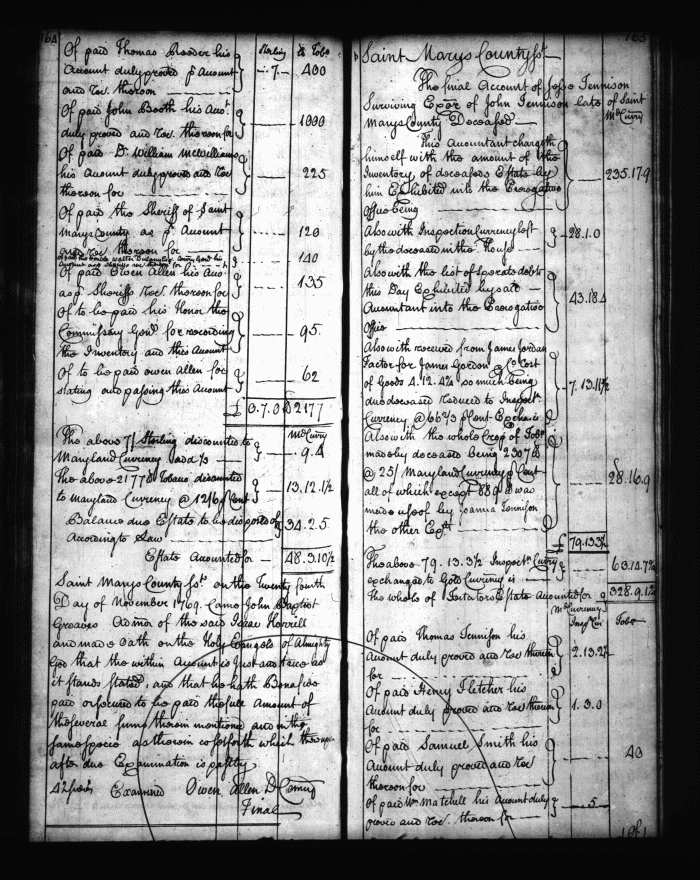 164
Sterling ℔ Tobo
Of paid Thomas Reeder his
Account duly proved ℘ Account
and Rec. thereon
-.7.- 400
Of paid John Booth his Accot.
duly proved and Rec. thereon for
1000
Of paid Dr. William McWilliams
his Account duly proved and Rec
thereon for
225
Of paid the Sheriff of Saint
Marys County as ℘ Account
and Rec. thereon for
120
140
Of paid Owen Allen his Acco.
as ℘ Sheriffs Rec. thereon for
135
Of to be paid his Honor the
Commissary Genl. for recording
the Inventory and this Account
95
Of to be paid Owen Allen for
stating and passing this Account
62
£ 0.7.0 2177
Md Curry
The above 7/ Sterling discounted to
Maryland Currency
9.4
The above 2177 ℔ Tobacco discounted
to Maryland Currency @ 12/6 ℘ Cent
13.12.1½
Balance due Estate to be disposed of
According to Law
34.2.5
Estate Accounted for 48.3.10½
Saint Marys County Sst. on the Twenty fourth
Day of November 1769. Came John Baptist
Greaves Admor of the said Isaac Horrell
and made Oath on the Holy Evangels of Almighty
God that the within Account is Just and true as
it stands stated, and that he hath Bonafide
paid or secured to be paid the full amount of
the several sums therein mentioned and in the
same specie as therein set forth which
after due Examination is past by
Examined Owen Allen D Comry
Final
165
Saint Marys County Sst.
The final Account of Jesse Tennison
Surviving Exor of John Tennison late of Saint
Marys County Deceased
Md Curry
This Accountant chargeth
himself with the amount of the
Inventory of deceaseds Estate by
him Exhibited into the Prerogative
Office being
235.17.9
Also with Inspection Currency left
by the deceased in the House
28.1.0
Also with the list of sperate debts
this Day Exhibited by said
Accountant into the Prerogative
Office
43.18.4
Also with received from James Jordan
Factor for James Gordon & Co Cost
of Goods 4.12.4½ so much being
due deceased Reduced to Inspect.
Currency @ 66⅔ ℘ Cent Excha. is
7.13.11½
Also with the whole Crop of Tobo.
made by deceased being 2307 ℔
@ 25/ Maryland Currency ℘ Cent
all of which except 889 ℔ was
made use of by Joanna Tennison
the other Exx.
28.16.9
£ 79.13.3½
The above 79.13.3½ Inspect. Curry
exchanged to Gold Currency is
63.14.7½
The whole of Testators Estate Accounted for 328.9.1½
Md Currency
Tobo
Of paid Thomas Tennison his
Account duly proved and Rec thereon
for
2.13.2½
Of paid Henry Fletcher his
Account duly proved and Rec thereon
for
1.3.0
Of paid Samuel Smith his
Account duly proved and Rec
thereon for
40
Of paid Wm. Matchett his Account duly
proved and Rec. thereon for
5